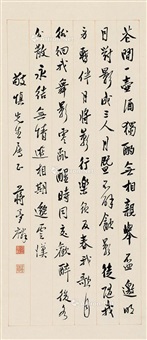 花間一壺酒獨酌無相親舉杯邀明
月對影成三人月既不解飲影徒隨我
身暫伴月將影行樂須及春我歌月
徘徊我舞影零亂醒時同交歡醉後各
分散永結無情遊相期邈雲漢
敬慎先生屬正
蔣